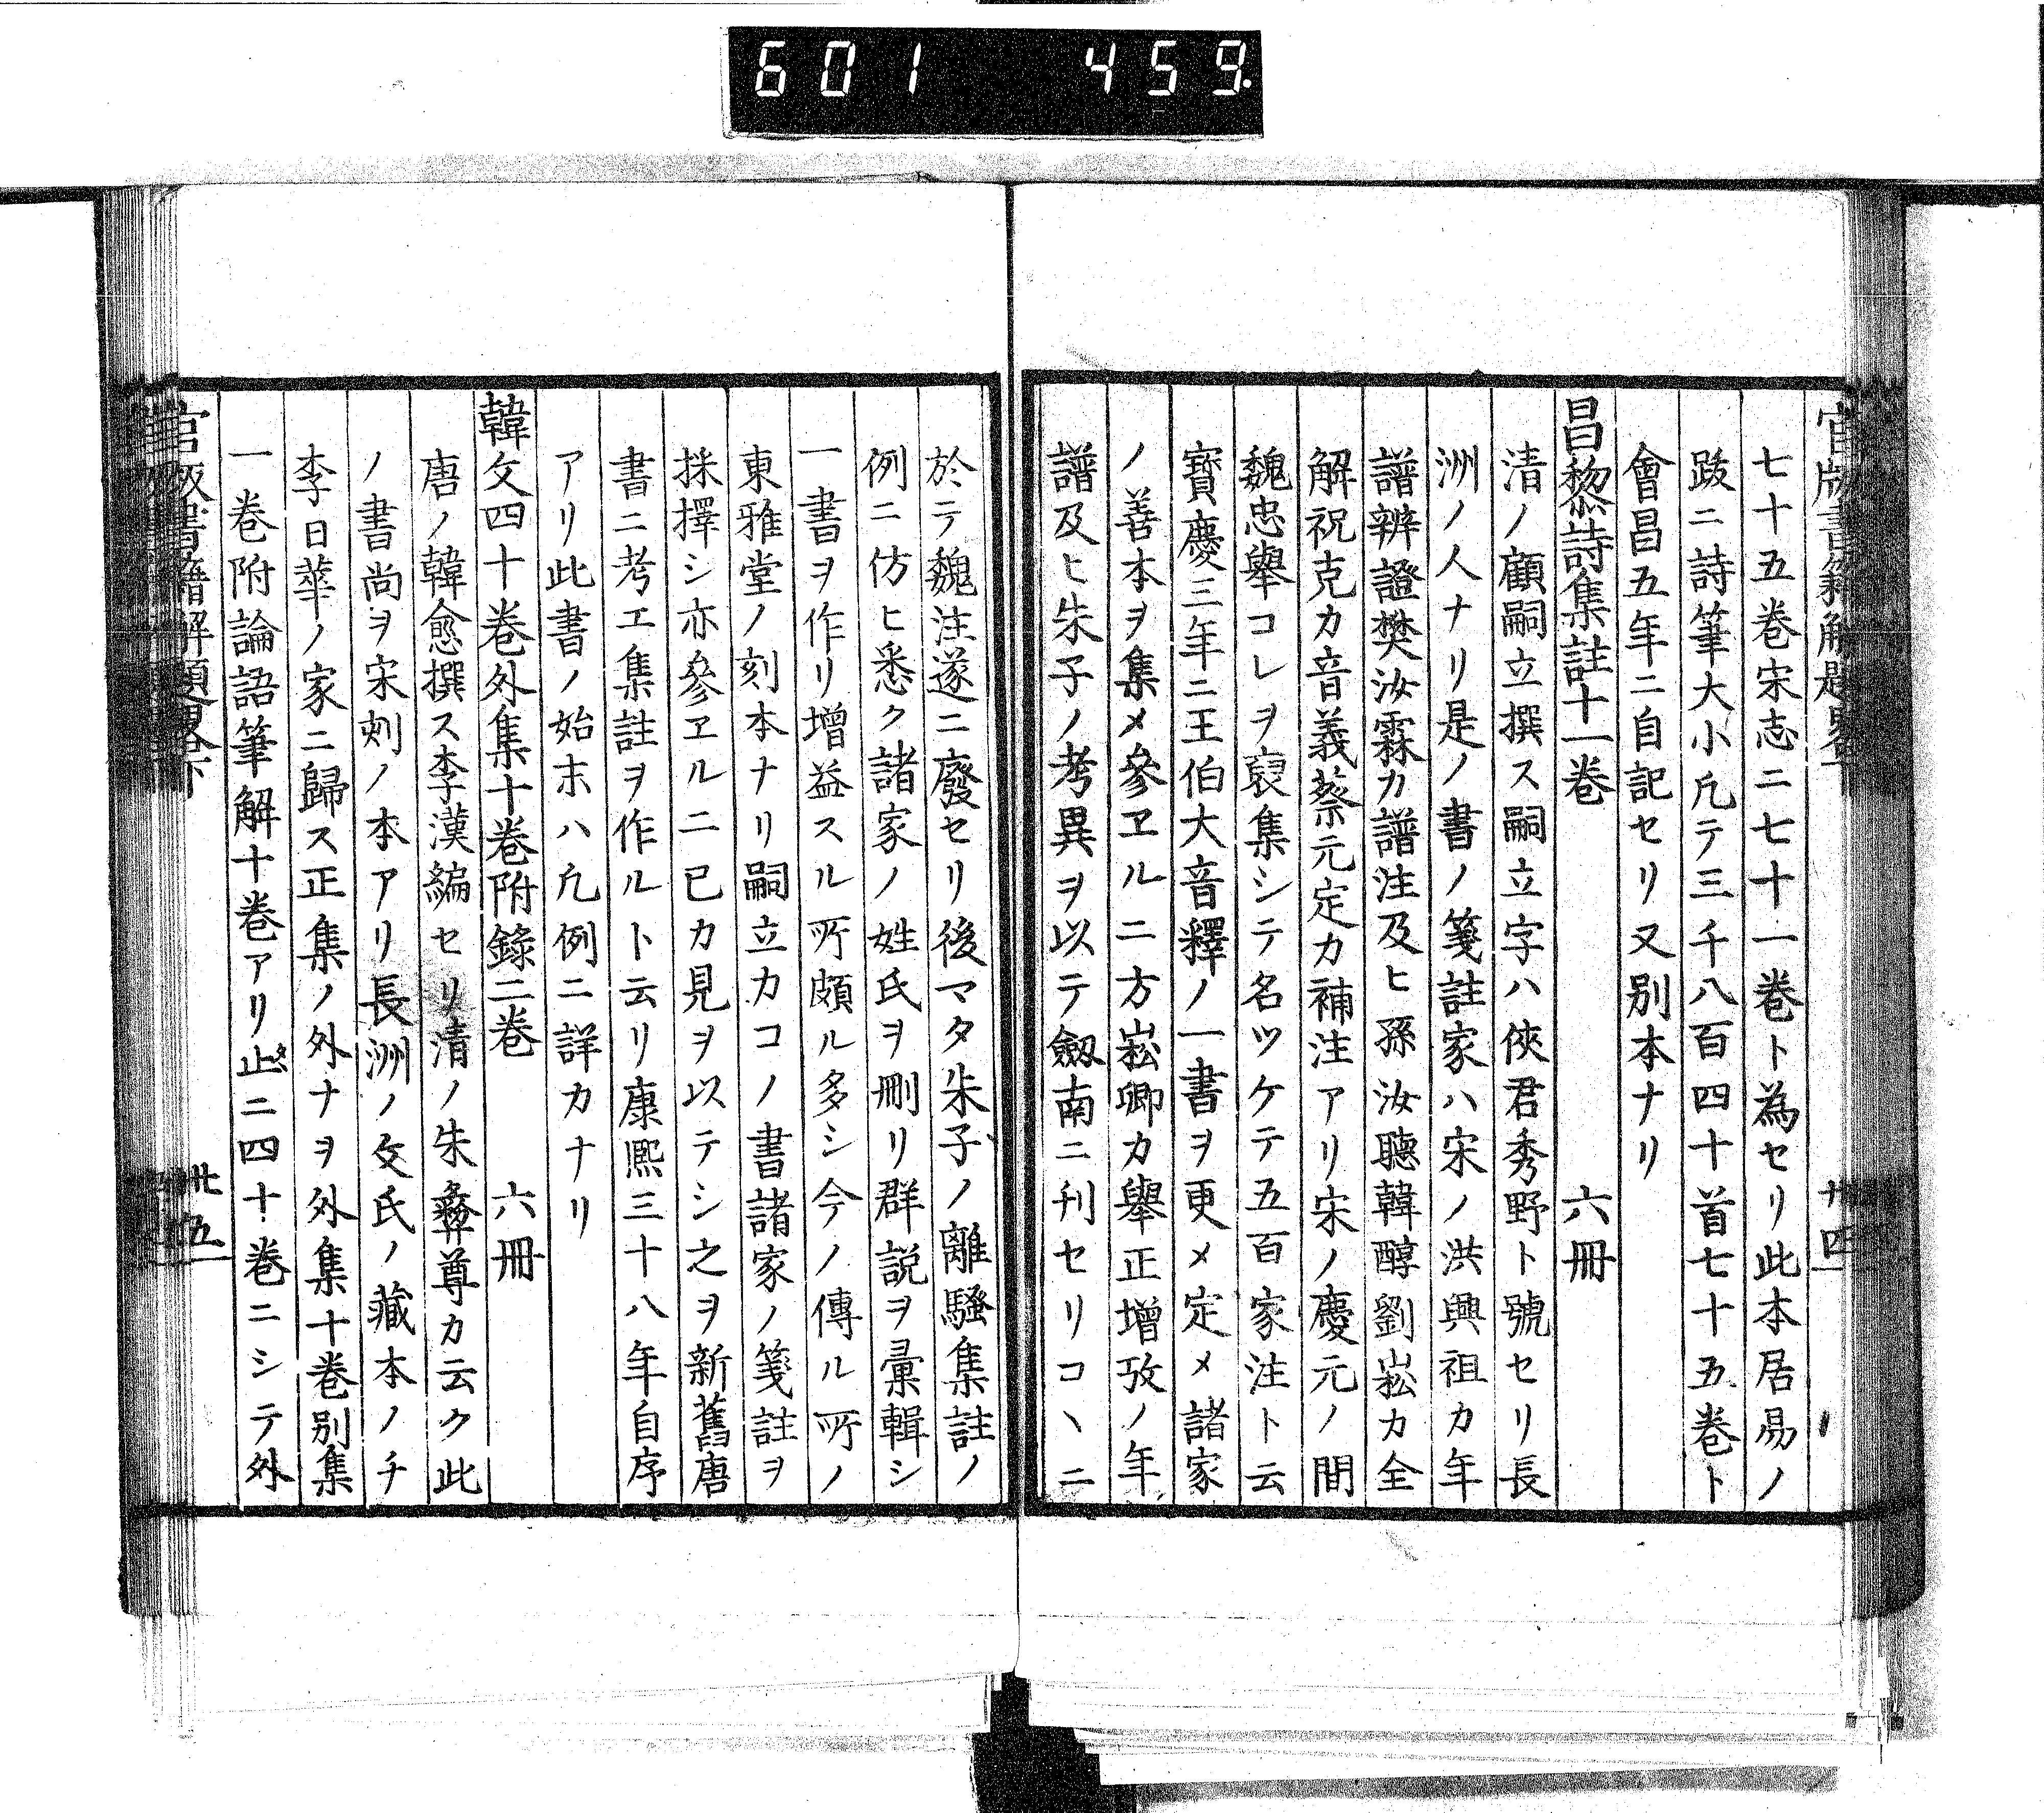 601 459
官版書籍解題略下
廿四
七十五巻宋志ニ七十一巻ト為セリ此本居易ノ
跋ニ詩筆大小凢テ三千八百四十首七十五巻ト
會昌五年ニ自記セリ又别本ナリ
昌黎詩集註十一巻 六冊
清ノ顧嗣立撰ス嗣立字ハ俠君秀野ト號セリ長
洲ノ人ナリ是ノ書ノ箋註家ハ宋ノ洪興祖カ年
譜辨證樊汝霖カ譜注及ヒ孫汝聽韓醇劉崧カ全
解祝克カ音義蔡元定カ補注アリ宋ノ慶元ノ間
魏忠舉コレヲ裒集シテ名ツケテ五百家注ト云
寳慶三年ニ王伯大音釋ノ一書ヲ更メ定メ諸家
ノ善本ヲ集メ參ヱルニ方崧卿カ舉正增攷ノ年
譜及ヒ朱子ノ考異ヲ以テ劔南ニ刊セリコヽニ
於テ魏注遂ニ廢セリ後マタ朱子ノ離騷集註ノ
例ニ仿ヒ悉ク諸家ノ姓氏ヲ刪リ群説ヲ彙輯シ
一書ヲ作リ增益スル所頗ル多シ今ノ傳ル所ノ
東雅堂ノ刻本ナリ嗣立カコノ書諸家ノ箋註ヲ
採擇シ亦參ヱルニ已カ見ヲ以テシ之ヲ新舊唐
書ニ考エ集註ヲ作ルト云リ康熙三十八年自序
アリ此書ノ始末ハ凢例ニ詳カナリ
韓文四十巻外集十巻附錄二巻 六冊
唐ノ韓愈撰ス李漢編セリ清ノ朱彝尊カ云ク此
ノ書尚ヲ宋刻ノ本アリ長洲ノ文氏ノ藏本ノチ
李日華ノ家ニ歸ス正集ノ外ナヲ外集十巻别集
一巻附論語筆解十巻アリ止タニ四十巻ニシテ外
官版書籍解題略下
廿五